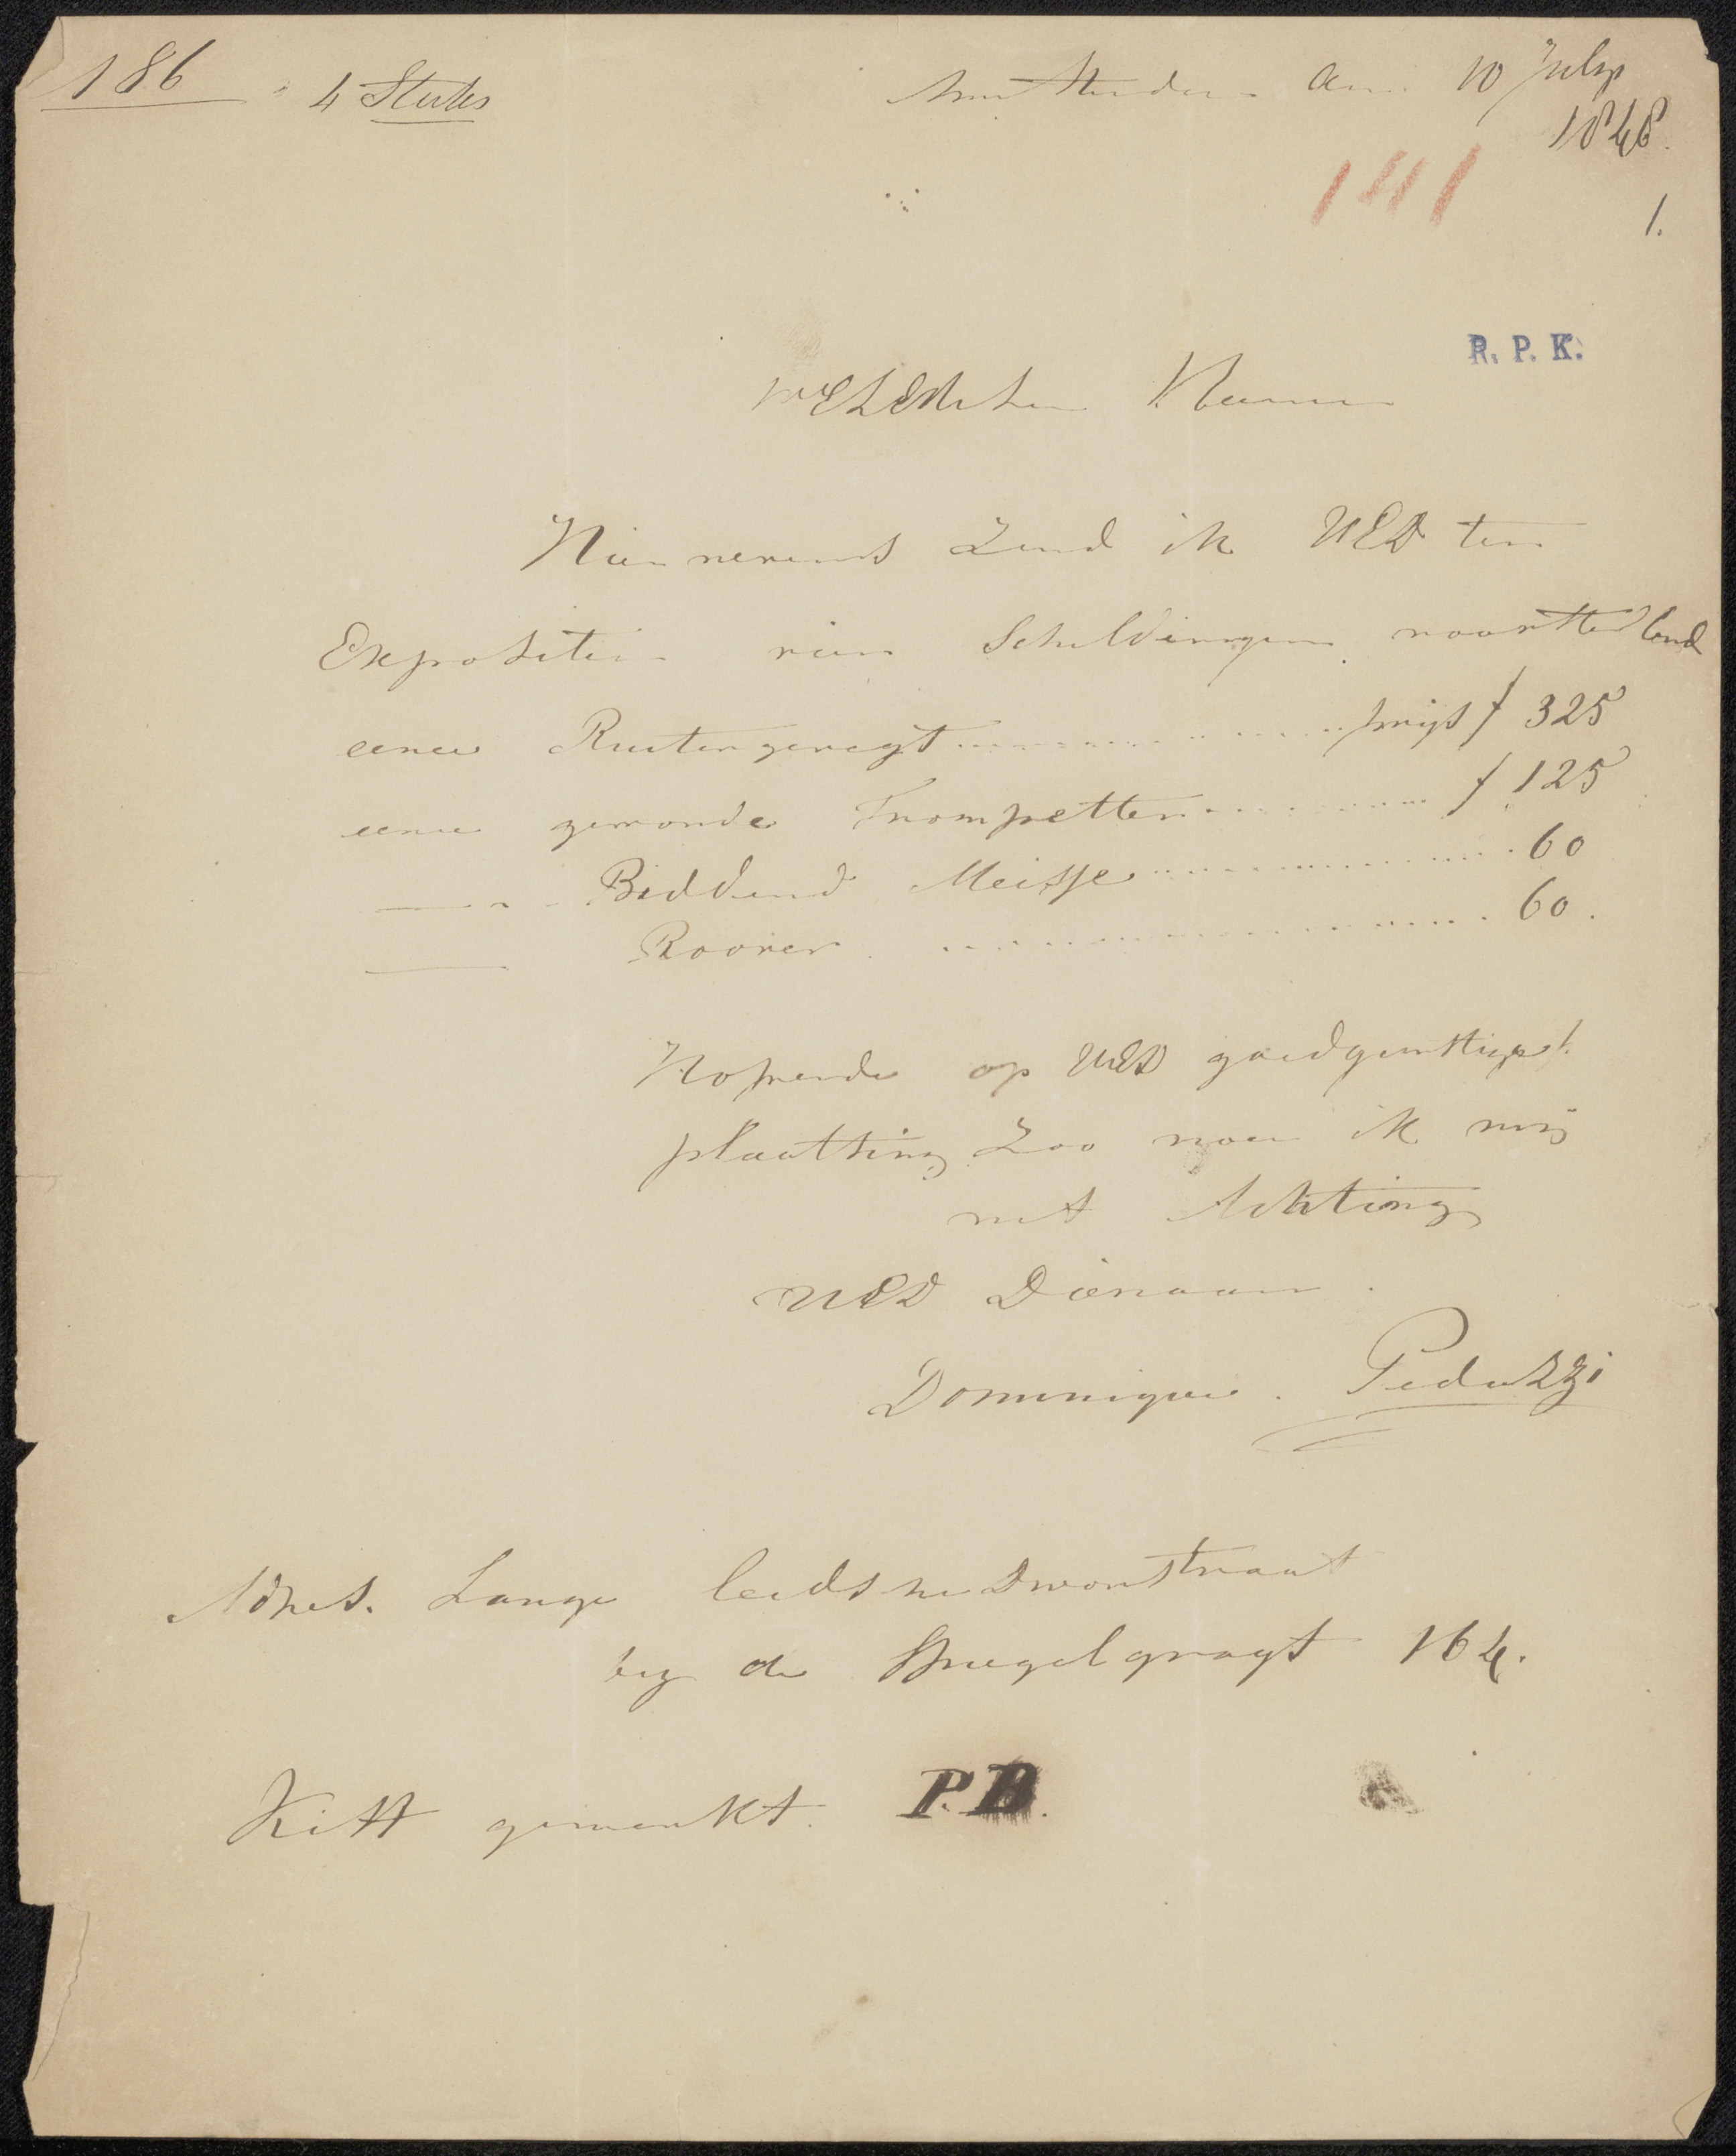 186 4 Stuks Amsterdam den 10 July
1848.
141
1.
R. P. K.
WELEdele Heeren
Hier nevens Zend ik UED ten
Expositie vier Schilderingen voorstellend
eene Ruitergevegt prijs f 325
eene gewonde Trompetter f 125
Biddend Meisje 60
Roover 60.
Hopende op UED goedgunstigst
plaatsing Zoo noem ik mij
met Achting
UED Dienaar
Dominique Peduzzi
Adres. Lange leidschedwarstraat
by de Spiegelgragt 164.
Kist gemerkt. P.D.